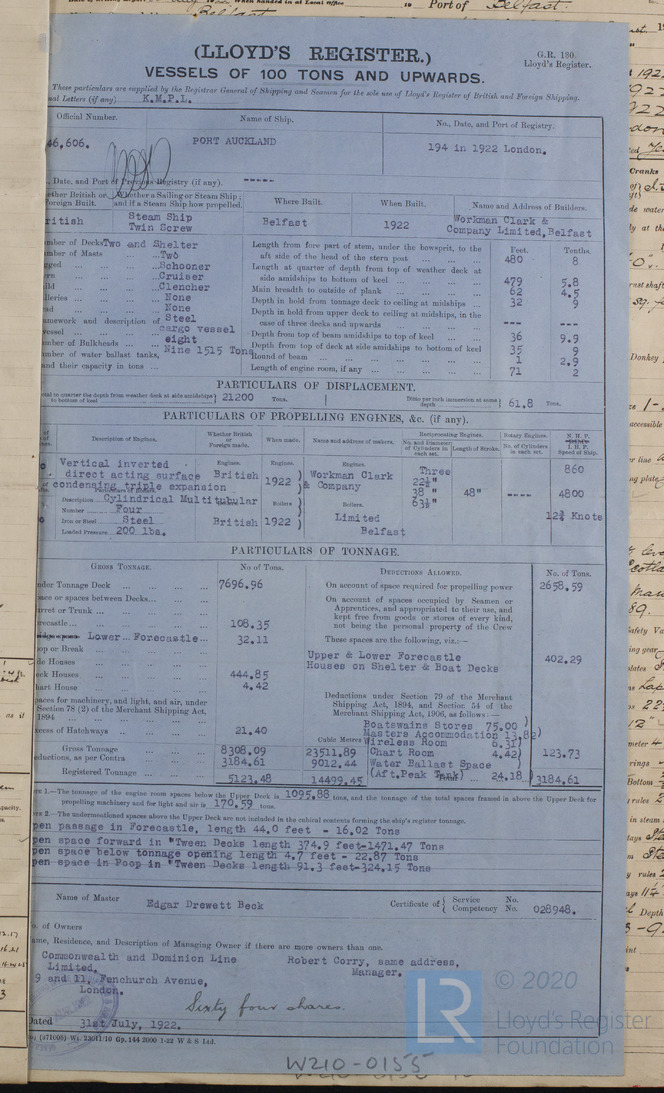 Port of Belfast.
Belfast
(LLOYD'S REGISTER.)
G.R. 130.
Lloyd's Register.
VESSELS OF 100 TONS AND UPWARDS.
These particulars are supplied by the Registrar General of Shipping and Seamen for the sole use of Lloyd's Register of British and Foreign Shipping.
nal Letters (if any) K.M.P.L.
Official Number. Name of Ship. No., Date, and Port of Registry.
46,606. PORT AUCKLAND 194 in 1922 London.
, Date, and Port of Previous Registry (if any). -----
ether British or Foreign Built. Whether a Sailing or Steam Ship; and if a Steam Ship how propelled. Where Built. When Built. Name and Address of Builders.
ritish Steam Ship Twin Screw Belfast 1922 Workman Clark & Company Limited, Belfast
mber of Decks Two and Shelter
mber of Masts Two
gged Schooner
rn Cruiser
ild Clencher
lleries None
ad None
amework and description of vessel Steel cargo vessel
mber of Bulkheads eight
mber of water ballast tanks, and their capacity in tons Nine 1515 Tons
Feet. Tenths.
Length from fore part of stem, under the bowsprit, to the aft side of the head of the stern post 480 8
Length at quarter of depth from top of weather deck at side amidships to bottom of keel 479 5.8
Main breadth to outside of plank 62 4.5
Depth in hold from tonnage deck to ceiling at midships 32 9
Depth in hold from upper deck to ceiling at midships, in the case of three decks and upwards --- ---
Depth from top of beam amidships to top of keel 36 9.9
Depth from top of deck at side amidships to bottom of keel 35 9
Round of beam 1 2.9
Length of engine room, if any 71 2
PARTICULARS OF DISPLACEMENT.
to quarter the depth from weather deck at side amidships to bottom of keel 21200 Tons. Ditto per inch immersion at same depth 61.8 Tons.
PARTICULARS OF PROPELLING ENGINES, &c. (if any).
Description of Engines. Whether British or Foreign made. When made. Name and address of makers. Reciprocating Engines. Rotary Engines. N. H. P.
No. and Diameter of Cylinders in each set. Length of Stroke. No. of Cylinders in each set. I. H. P. Speed of Ship.
Engines. Engines. Engines.
Vertical inverted direct acting surface condensing triple expansion British 1922 Workman Clark & Company Three 22½" 38" 63½" 48" ---- 860 4800
Description Cylindrical Multitubular
Boilers Boilers.
Number Four
Iron or Steel Steel British 1922 Limited Belfast 12¾ Knots
Loaded Pressure 200 lbs.
PARTICULARS OF TONNAGE.
GROSS TONNAGE. No of Tons. DEDUCTIONS ALLOWED. No. of Tons.
nder Tonnage Deck 7696.96 On account of space required for propelling power 2658.59
ace or spaces between Decks
On account of spaces occupied by Seamen or Apprentices, and appropriated to their use, and kept free from goods or stores of every kind, not being the personal property of the Crew
rret or Trunk
recastle 108.35
Lower Forecastle 32.11 These spaces are the following, viz.:—
op or Break
de Houses Upper & Lower Forecastle Houses on Shelter & Boat Decks 402.29
eck Houses 444.85
hart House 4.42
paces for machinery, and light, and air, under Section 78 (2) of the Merchant Shipping Act, 1894
Deductions under Section 79 of the Merchant Shipping Act, 1894, and Section 54 of the Merchant Shipping Act, 1906, as follows:—
xcess of Hatchways 21.40
Boatswains Stores 75.00
Masters Accommodation 13.82
Cubic Metres Wireless Room 6.31
Gross Tonnage 8308.09 23511.89 Chart Room 4.42 123.73
eductions, as per Contra 3184.61 9012.44 Water Ballast Space
Registered Tonnage 5123.48 14499.45 (Aft.Peak Tank) 24.18 3184.61
e 1.—The tonnage of the engine room spaces below the Upper Deck is 1095.88 tons, and the tonnage of the total spaces framed in above the Upper Deck for
propelling machinery and for light and air is 170.59 tons.
e 2.—The undermentioned spaces above the Upper Deck are not included in the cubical contents forming the ship's register tonnage.
pen passage in Forecastle, length 44.0 feet - 16.02 Tons
pen space forward in 'Tween Decks length 374.9 feet-1471.47 Tons
pen space below tonnage opening length 4.7 feet - 22.87 Tons
pen space in Poop in 'Tween Decks length 91.3 feet-324.15 Tons
Name of Master Edgar Drewett Beck Certificate of Service No. Competency No. 028948.
o. of Owners
ame, Residence, and Description of Managing Owner if there are more owners than one.
Commonwealth and Dominion Line Limited,
9 and 11, Fenchurch Avenue,
London.
Robert Corry, same address,
Manager.
Sixty four shares.
Dated 31st July, 1922.
Gp. 144 2000 1-22 W & S Ltd.
LR
© 2020
Lloyd's Register
Foundation
W210-0155